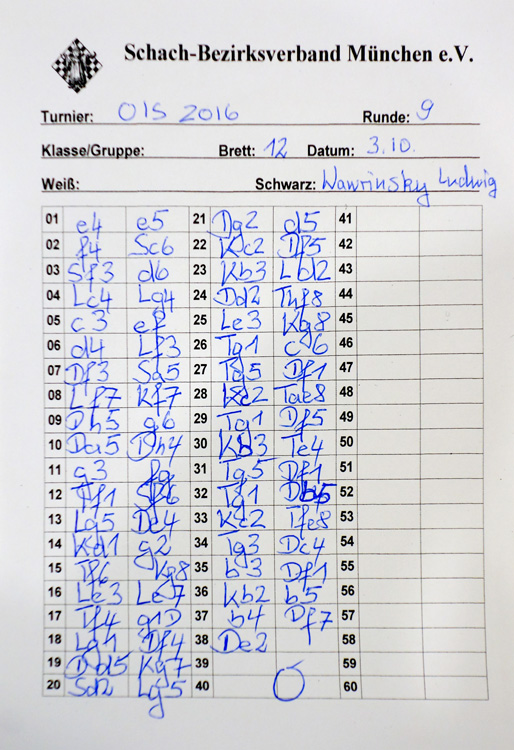 Schach-Bezirksverband München e.V.
Turnier: OIS 2016 Runde: 9
Klasse/Gruppe: Brett: 12 Datum: 3.10.
Weiß: Schwarz: Wawrinsky Ludwig
01 e4 e5 21 Dg2 d5 41
02 f4 Sc6 22 Kc2 Df5 42
03 Sf3 d6 23 Kb3 Lbd2 43
04 Lc4 Lg4 24 Dd2 Thf8 44
05 c3 ef 25 Le3 Kg8 45
06 d4 Lf3 26 Tg1 c6 46
07 Df3 Sa5 27 Tg5 Df1 47
08 Lf7 Kf7 28 Kc2 Tae8 48
09 Dh5 g6 29 Tg1 Df5 49
10 Da5 Dh4 30 Kb3 Te4 50
11 g3 fg 31 Tg5 Df1 51
12 Tf1 Sf6 32 Tg1 Db5 52
13 Lg5 De4 33 Kc2 Tfe8 53
14 Kd1 g2 34 Tg3 Dc4 54
15 Tf6 Kg8 35 b3 Df1 55
16 Le3 Le7 36 Kb2 b5 56
17 Tf4 g1D 37 b4 Df7 57
18 Lg1 Df4 38 De2 58
19 Dd5 Kg7 39 59
20 Sd2 Lg5 40 60